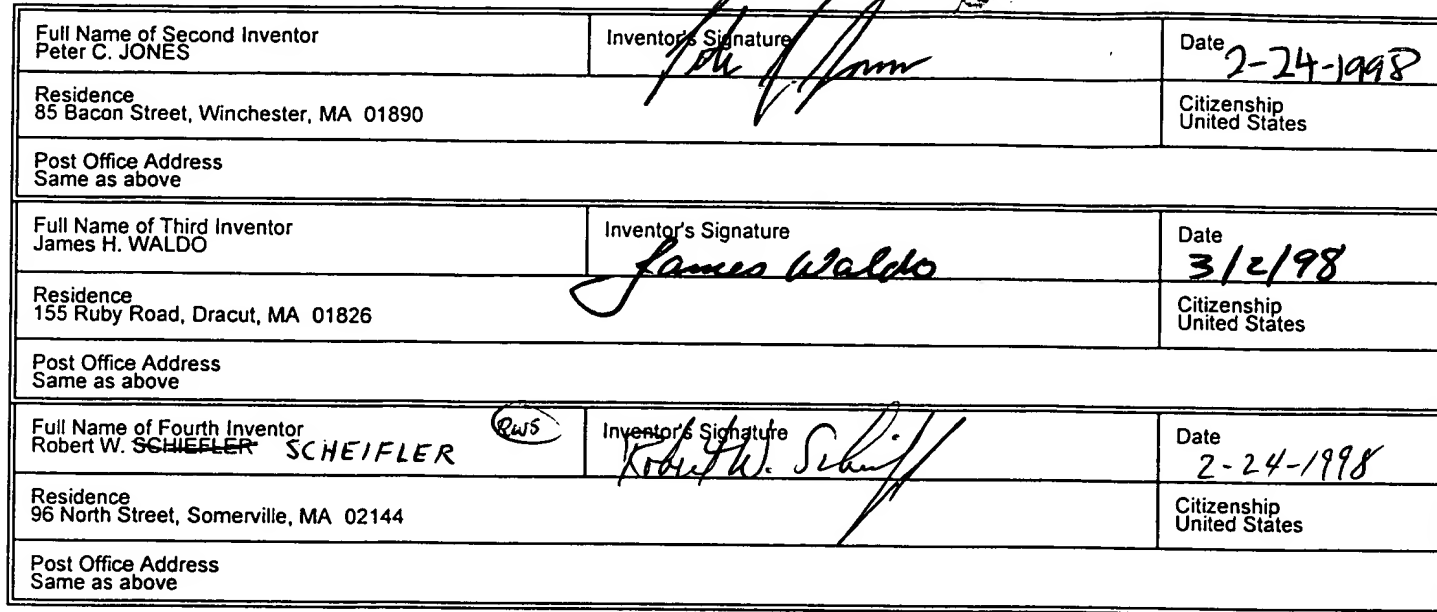 Full Name of Second Inventor
Peter C. JONES
Inventor's Signature
Date
2-24-1998
Residence
85 Bacon Street, Winchester, MA 01890
Citizenship
United States
Post Office Address
Same as above
Full Name of Third Inventor
James H. WALDO
Inventor's Signature
James Waldo
Date
3/2/98
Residence
155 Ruby Road, Dracut, MA 01826
Citizenship
United States
Post Office Address
Same as above
Full Name of Fourth Inventor
Robert W. SCHIEFLER SCHEIFLER
RWS
Inventor's Signature
Robert W.
Date
2-24-1998
Residence
96 North Street, Somerville, MA 02144
Citizenship
United States
Post Office Address
Same as above